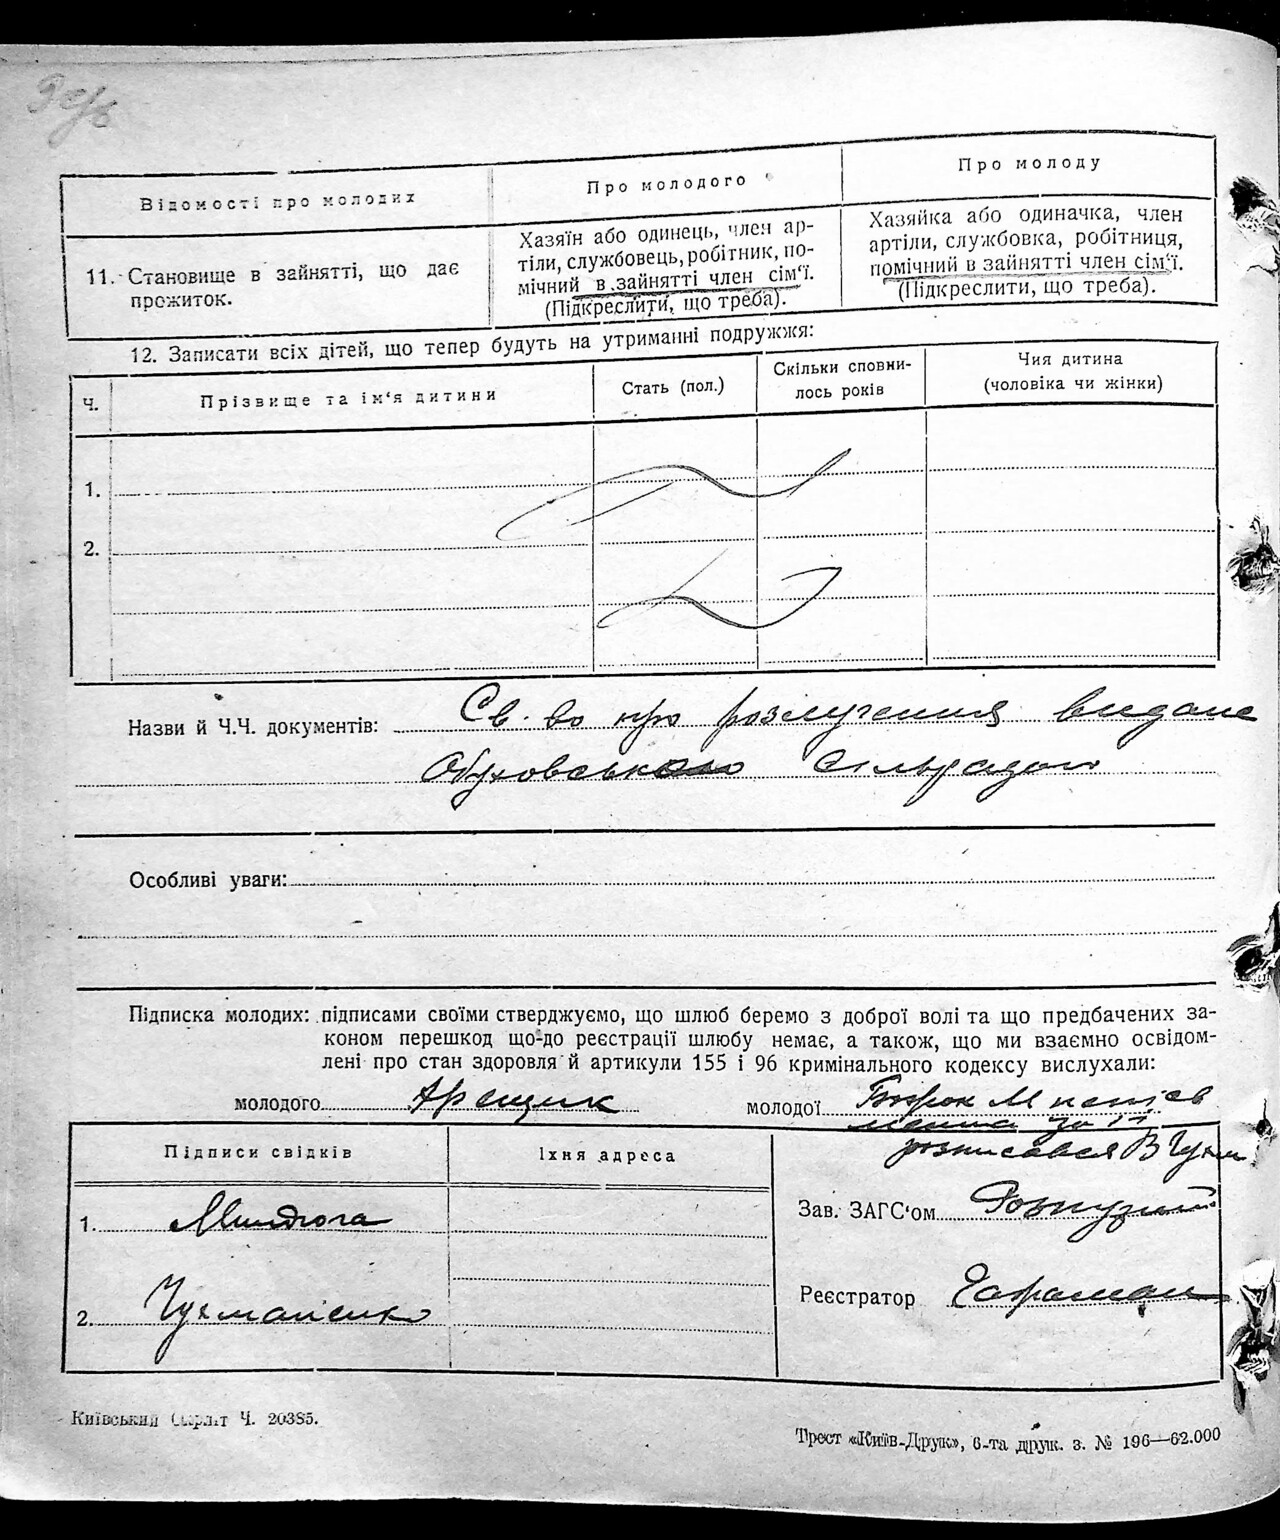 Відомості про молодих
Про молодого
Про молоду
11. Становище в зайнятті, що дає
прожиток.
Хазяїн або одинець, член ар-
тіли, службовець, робітник, по-
мічний в зайнятті член сім'ї.
(Підкреслити, що треба).
Хазяйка або одиначка, член
артіли, службовка, робітниця,
помічний в зайнятті член сім'ї.
(Підкреслити, що треба).
12. Записати всіх дітей, що тепер будуть на утриманні подружжя:
Ч.
Прізвище та ім'я дитини
Стать (пол.)
Скільки сповни-
лось років
Чия дитина
(чоловіка чи жінки)
1.
2.
Назви й Ч.Ч. документів: Св-во про розлучення видане
Обуховською сільрадою
Особливі уваги:
Підписка молодих: підписами своїми стверджуємо, що шлюб беремо з доброї волі та що предбачених за-
коном перешкод що-до реєстрації шлюбу немає, а також, що ми взаємно освідом-
лені про стан здоровля й артикули 155 і 96 кримінального кодексу вислухали:
молодого
молодої
за
розписався В
Підписи свідків
Їхня адреса
1.
2. Чухманенко
Зав. ЗАГС'ом
Реєстратор
Київський Окрліт Ч. 20385.
Трест «Київ-Друк», 6-та друк. з. № 196—62.000